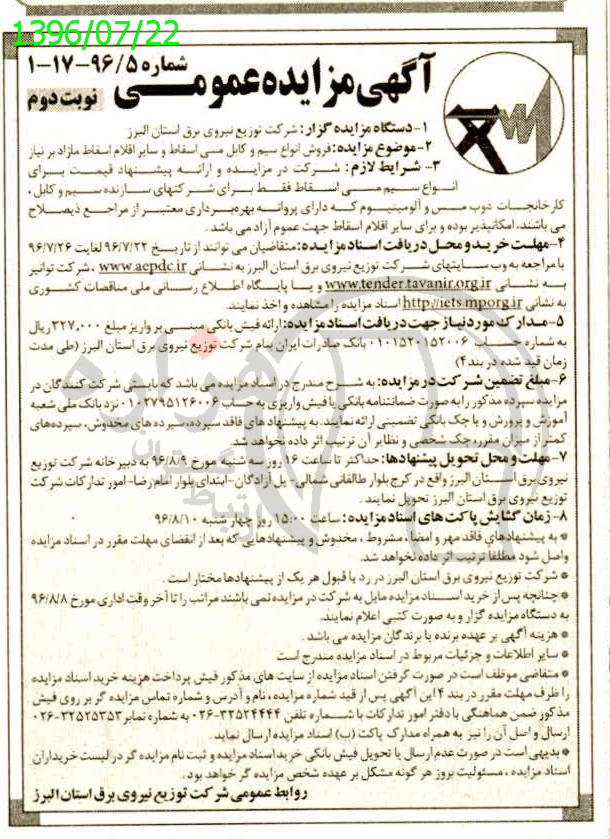 1396/07/22
آگهی مزایده عمومی
شماره ۹۶/۵-۱۷-۱
نوبت دوم
۱-دستگاه مزایده گزار: شرکت توزیع نیروی برق استان البرز
۲-موضوع مزایده: فروش انواع سیم و کابل مسی اسقاط و سایر اقلام اسقاط مازاد بر نیاز
۳- شرایط لازم: شرکت در مزایده و ارائه پیشنهاد قیمت برای
انواع سیم مسی اسقاط فقط برای شرکتهای سازنده سیم و کابل،
کارخانجات ذوب مس و آلومینیوم که دارای پروانه بهره‌برداری معتبر از مراجع ذیصلاح
می باشند، امکانپذیر بوده و برای سایر اقلام اسقاط جهت عموم آزاد می باشد.
۴-مهلت خرید و محل دریافت اسناد مزایده: متقاضیان می توانند از تاریخ ۹۶/۷/۲۲ لغایت ۹۶/۷/۲۶
با مراجعه به وب سایتهای شرکت توزیع نیروی برق استان البرز به نشانی www.aepdc.ir، شرکت توانیر
به نشانی www.tender.tavanir.org.ir و یا پایگاه اطلاع رسانی ملی مناقصات کشوری
به نشانی http://iets.mporg.ir اسناد مزایده را مشاهده و اخذ نمایند.
۵-مدارک مورد نیاز جهت دریافت اسناد مزایده: ارائه فیش بانکی مبنی بر واریز مبلغ ۳۲۷,۰۰۰ ریال
به شماره حساب ۰۱۰۱۵۲۰۱۵۲۰۰۶ بانک صادرات ایران بنام شرکت توزیع نیروی برق استان البرز (طی مدت
زمان قید شده در بند ۴)
۶-مبلغ تضمین شرکت در مزایده: به شرح مندرج در اسناد مزایده می باشد که بایستی شرکت کنندگان در
مزایده سپرده مذکور را به صورت ضمانتنامه بانکی یا فیش واریزی به حساب ۰۱۰۲۷۹۵۱۲۶۰۰۶ نزد بانک ملی شعبه
آموزش و پرورش و یا چک بانکی تضمینی ارائه نمایند. به پیشنهاد های فاقد سپرده، سپرده های مخدوش، سپرده‌های
کمتر از میزان مقرر، چک شخصی و نظایر آن ترتیب اثر داده نخواهد شد.
۷-مهلت و محل تحویل پیشنهادها: حداکثر تا ساعت ۱۶ روز سه شنبه مورخ ۹۶/۸/۹ به دبیر خانه شرکت توزیع
نیروی برق استان البرز واقع در کرج بلوار طالقانی شمالی- پل آزادگان-ابتدای بلوار امام رضا-امور تدارکات شرکت
توزیع نیروی برق استان البرز تحویل نمایند.
۸-زمان گشایش پاکت های اسناد مزایده: ساعت ۱۵:۰۰ روز چهار شنبه ۹۶/۸/۱۰
* به پیشنهادهای فاقد مهر و امضا، مشروط، مخدوش و پیشنهادهایی که بعد از انقضای مهلت مقرر در اسناد مزایده
واصل شود مطلقا ترتیب اثر داده نخواهد شد.
* شرکت توزیع نیروی برق استان البرز در رد یا قبول هر یک از پیشنهادها مختار است.
* چنانچه پس از خرید اسناد مزایده مایل به شرکت در مزایده نمی باشند مراتب را تا آخر وقت اداری مورخ ۹۶/۸/۸
به دستگاه مزایده گزار و به صورت کتبی اعلام نمایند.
* هزینه آگهی بر عهده برنده یا برندگان مزایده می باشد.
* سایر اطلاعات و جزئیات مربوط در اسناد مزایده مندرج است
* متقاضی موظف است در صورت گرفتن اسناد مزایده از سایت های مذکور فیش پرداخت هزینه خرید اسناد مزایده
را ظرف مهلت مقرر در بند ۴ این آگهی پس از قید شماره مزایده، نام و آدرس و شماره تماس مزایده گر بر روی فیش
مذکور ضمن هماهنگی با دفتر امور تدارکات با شماره تلفن ۳۲۵۲۴۴۴۴-۰۲۶ به شماره نمابر ۳۲۵۲۵۳۵۳-۰۲۶
ارسال و اصل آن را نیز به همراه مدارک پاکت (ب) اسناد مزایده ارسال نماید.
* بدیهی است در صورت عدم ارسال یا تحویل فیش بانکی خرید اسناد مزایده و ثبت نام مزایده گر در لیست خریداران
اسناد مزایده، مسئولیت بروز هر گونه مشکل بر عهده شخص مزایده گر خواهد بود.
روابط عمومی شرکت توزیع نیروی برق استان البرز